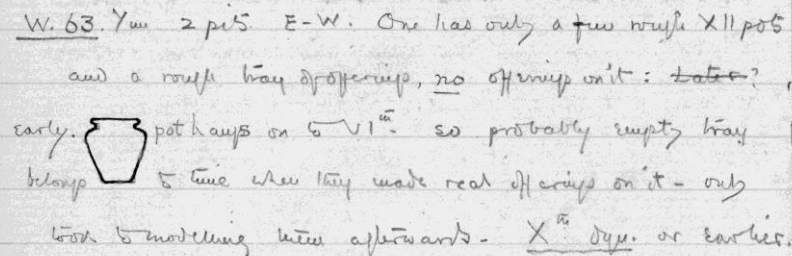 W. 63. Yum 2 pits E-W. One has only a few rough XII pots
and a rough tray of offerings, no offerings on it: Later? ,
early. pot hangs on to VIth. so probably empty tray
belongs to time when they made real offerings on it - only
took to modelling them afterwards - Xth dyn. or earlier.